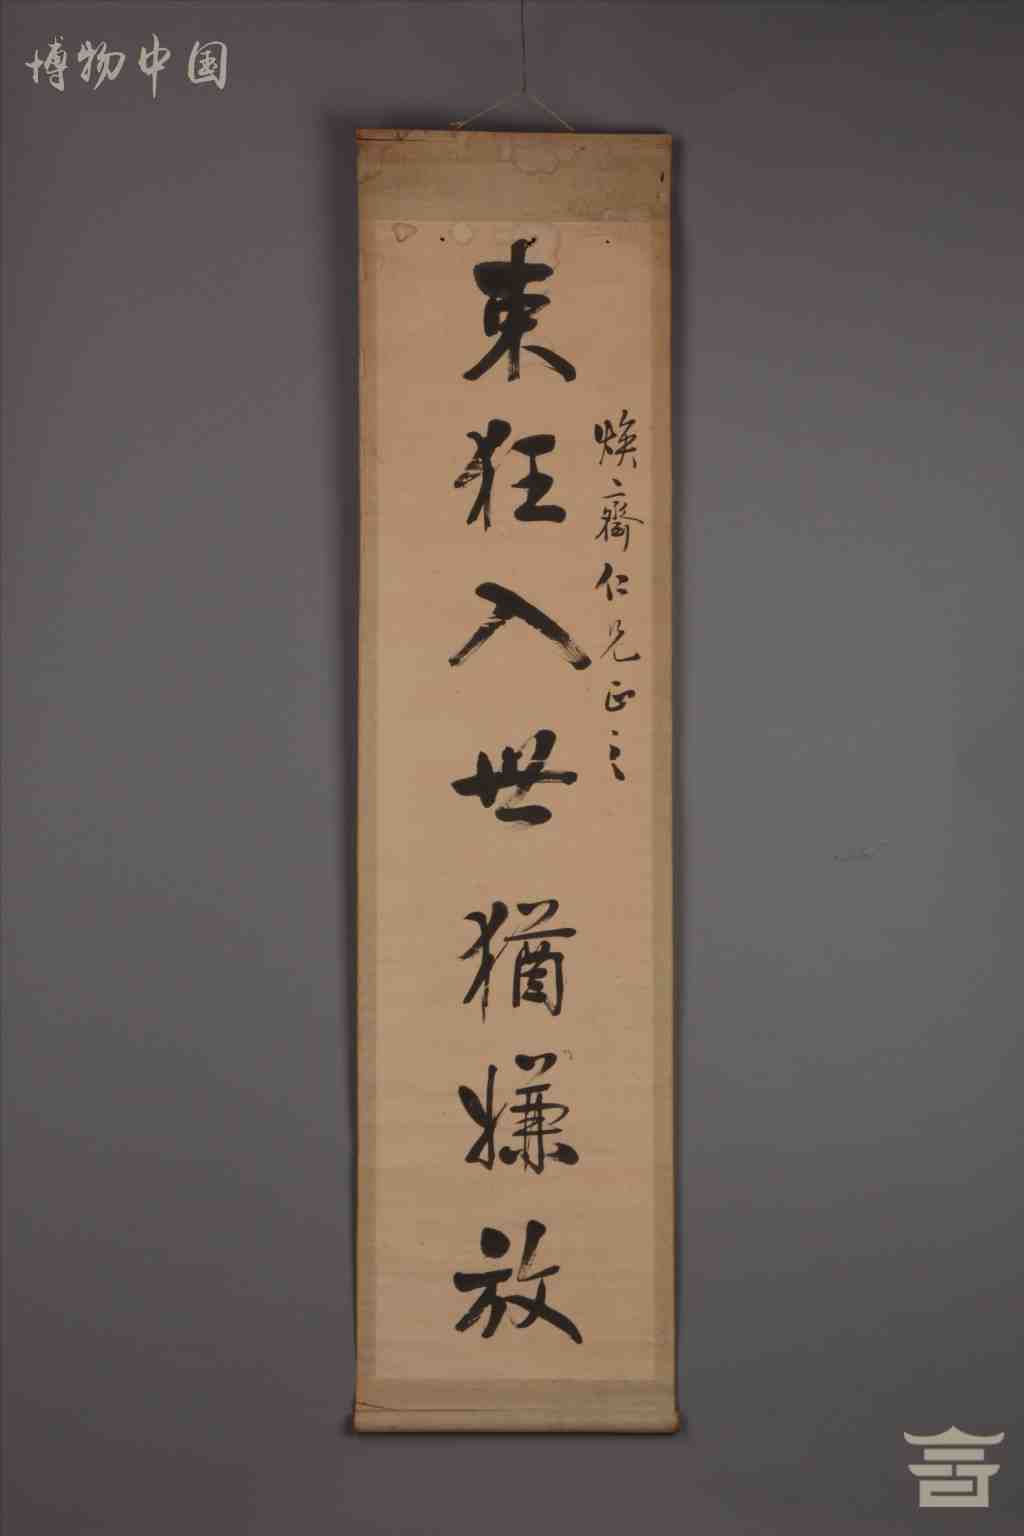 博物中国
焕斋仁兄正之
束狂入世犹嫌放